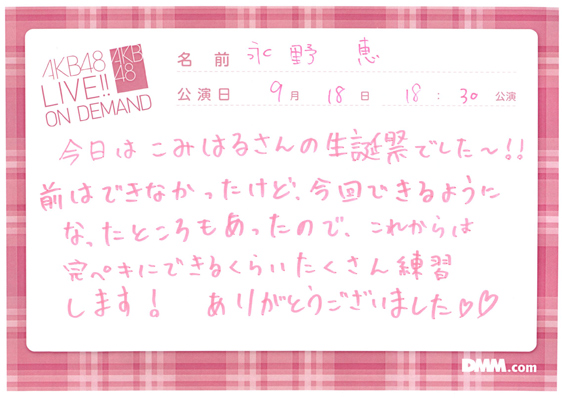 AKB48
LIVE!!
ON DEMAND
AKB
48
名前 永野 恵
公演日 9月 18日 18:30 公演
今日はこみはるさんの生誕祭でした〜!!
前はできなかったけど、今回できるように
なったところもあったので、これからは
完ペキにできるくらいたくさん練習
します! ありがとうございました♡♡
DMM.com